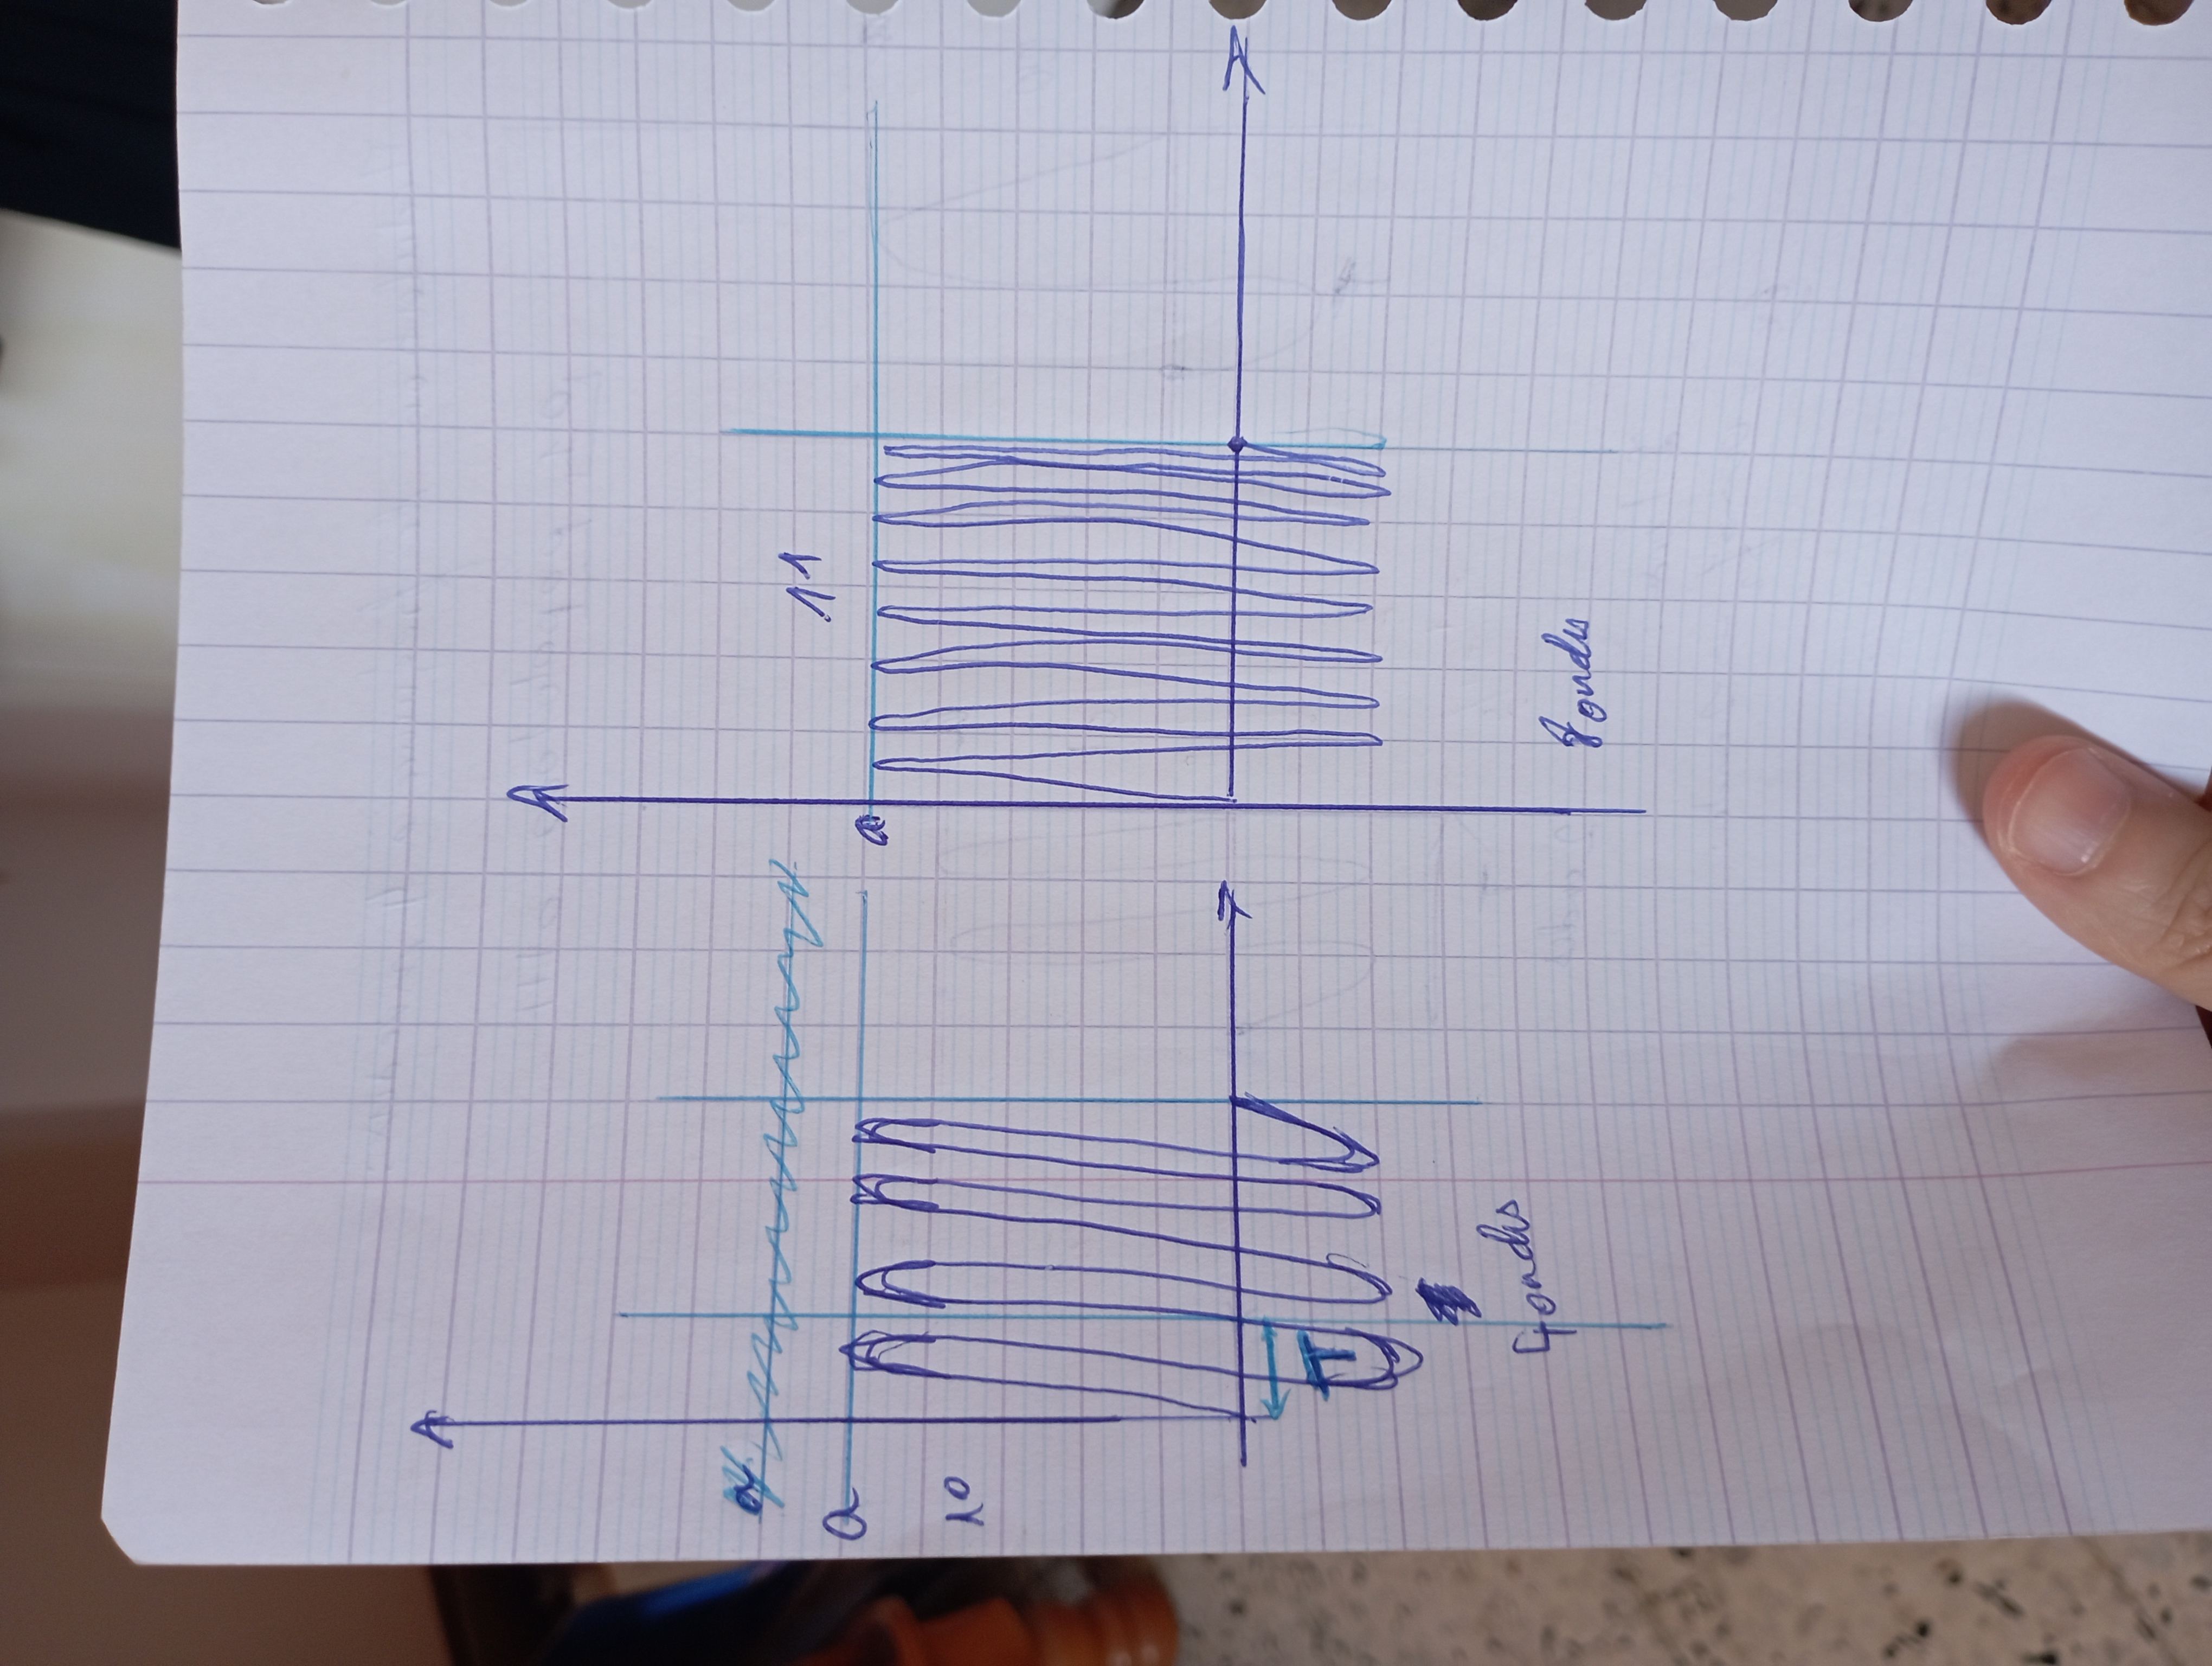 a
10
T
4 ondes
11
a
8 ondes